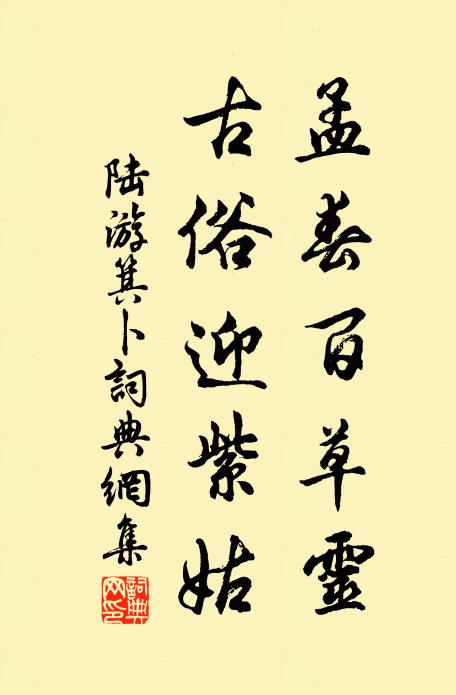 孟春百草靈
古俗迎紫姑
陸游箕卜詞典網集
詞典網印